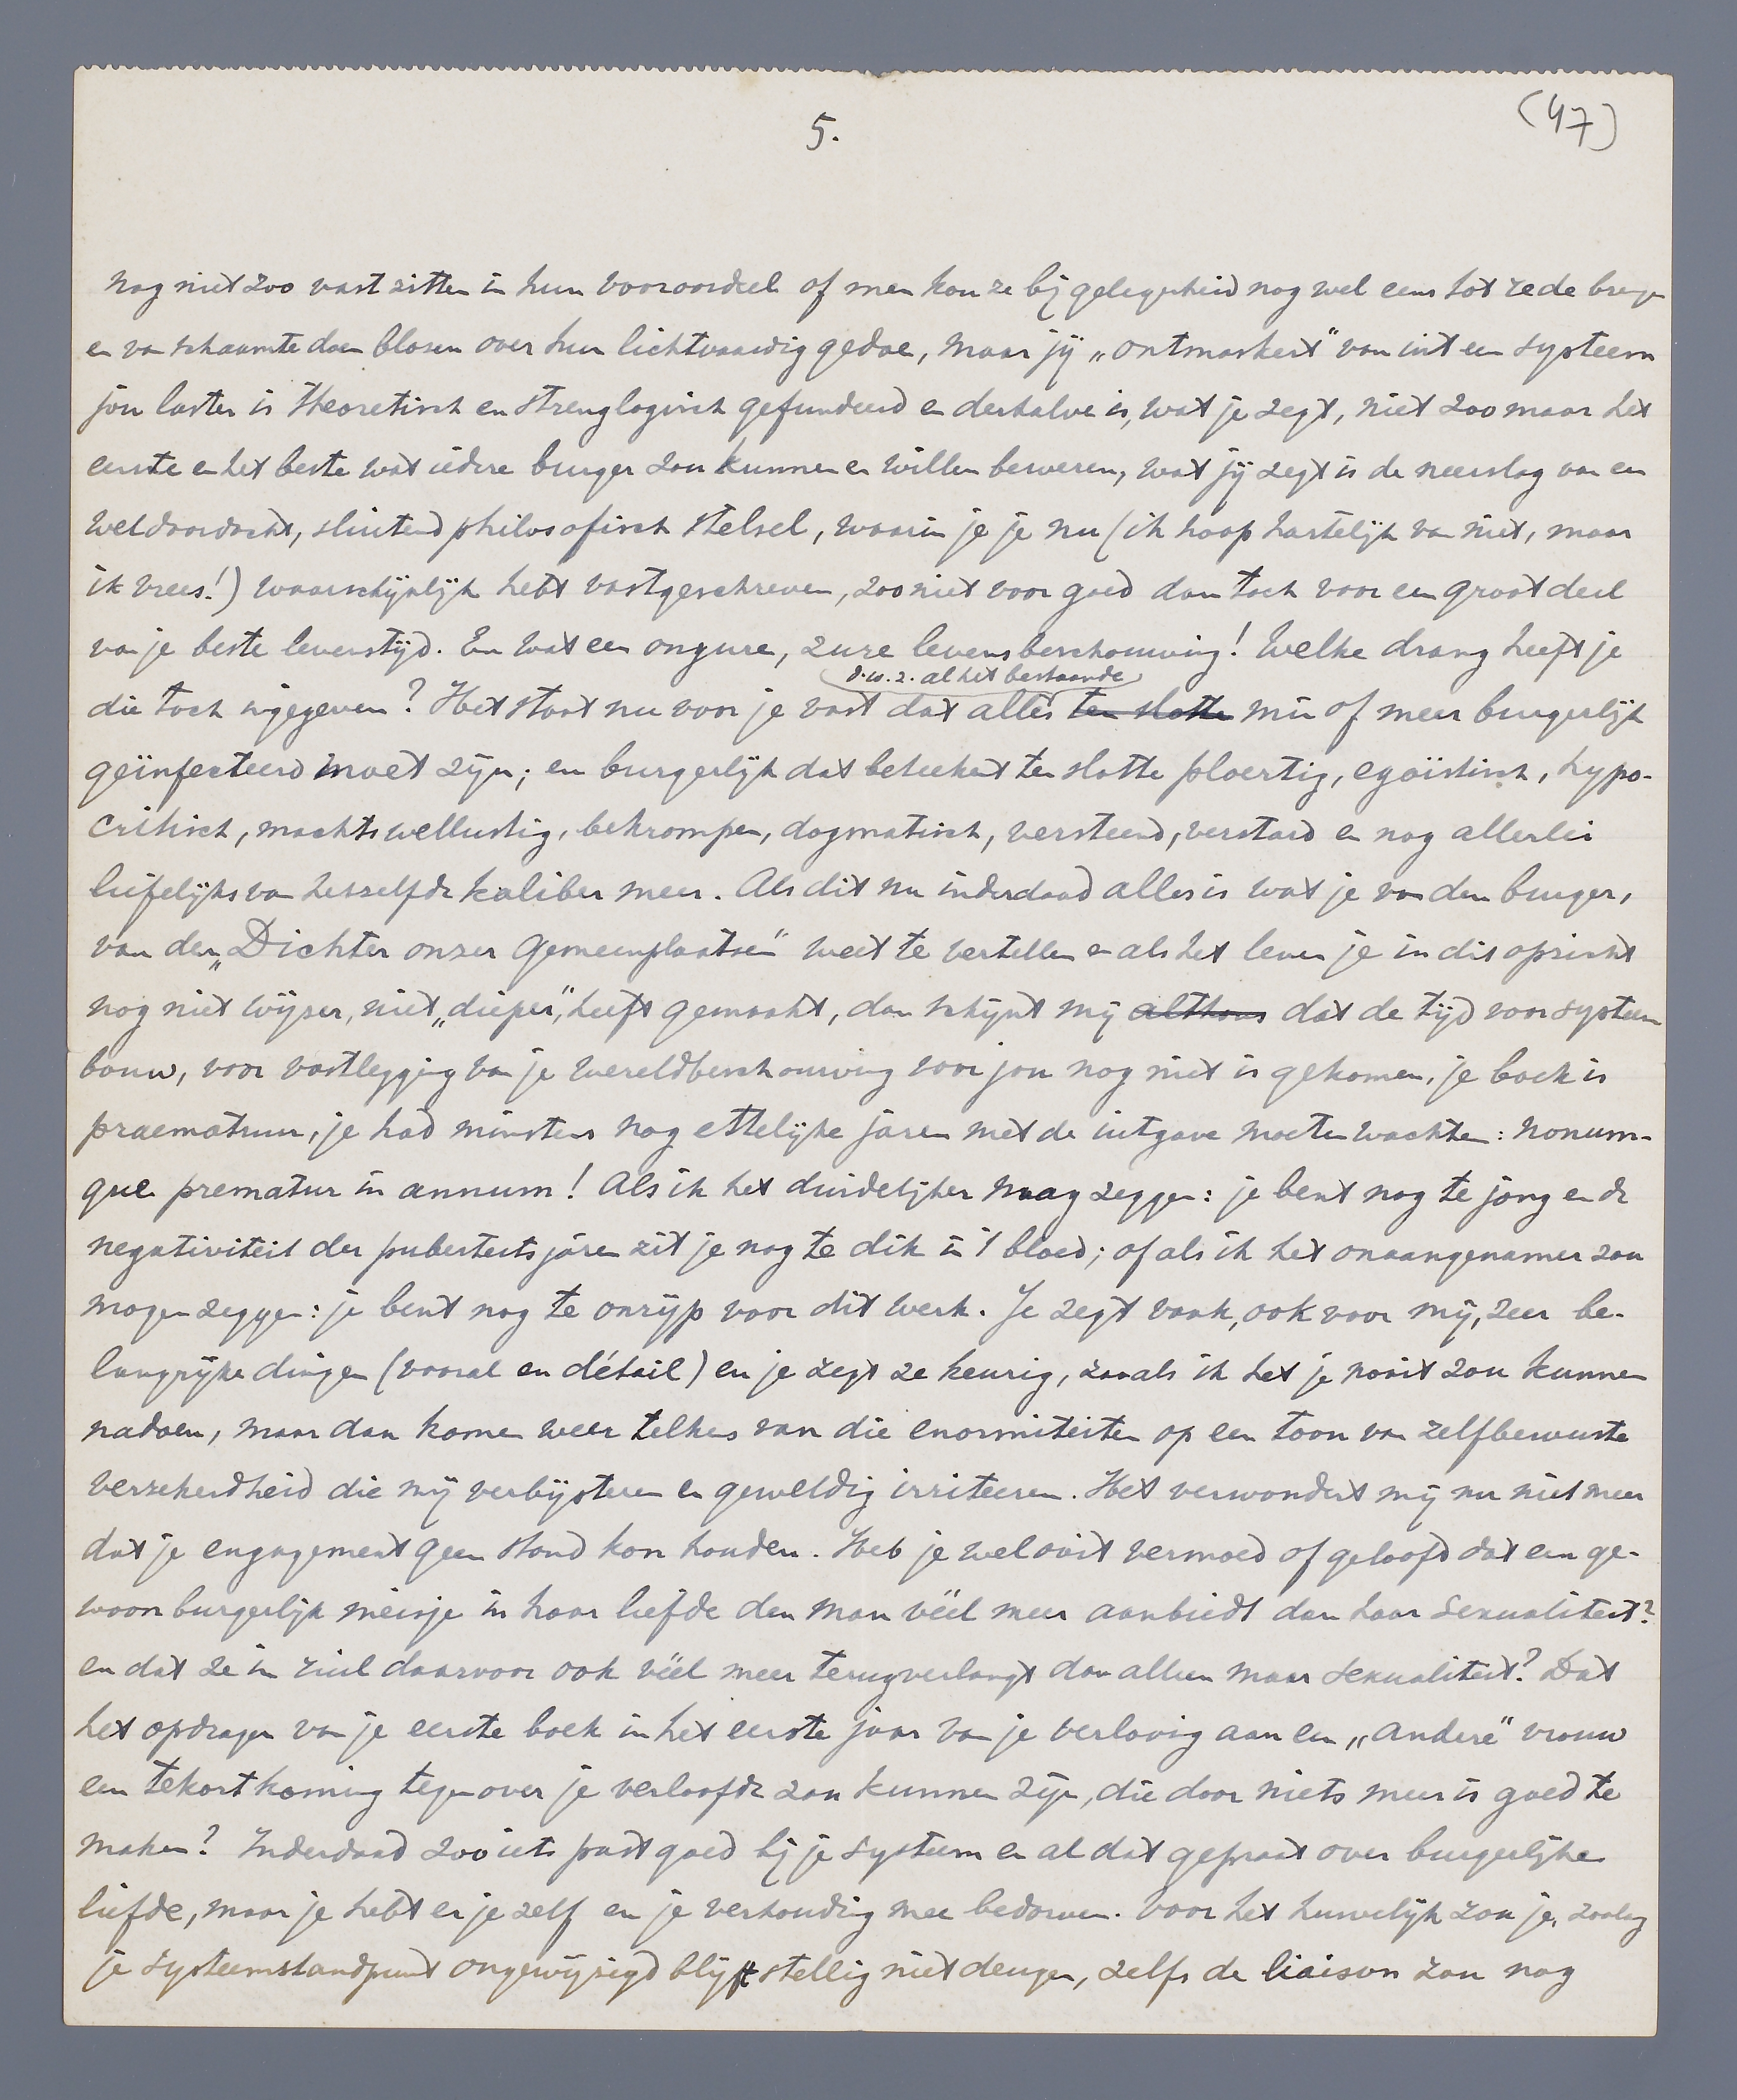 5.
(47)
nog niet zoo vast zitten in hun vooroordeel of men kon ze bij gelegenheid nog wel eens tot rede brengen
en van schaamte doen blozen over hun lichtvaardig gedoe, maar jij „ontmaskert" van uit een systeem
jou laster is theoretisch en strenglogisch gefundeerd en derhalve is, wat je zegt, niet zoo maar het
eerste en het beste wat iedere burger zou kunnen en willen beweren, wat jij zegt is de neerslag van een
weldoordacht, sluitend philosofisch stelsel, waarin je je nu (ik hoop hartelijk van niet, maar
ik vrees!) waarschijnlijk hebt vastgeschreven, zoo niet voor goed dan toch voor een groot deel
van je beste levenstijd. En wat een ongure, zure levensbeschouwing! Welke drang heeft je
d.w.z. al het bestaande
die toch ingegeven? Het staat nu voor je vast dat alles ten slotte min of meer burgerlijk
geïnfecteerd moet zijn; en burgerlijk dat beteekent ten slotte ploertig, egoïstisch, hypo-
critisch, machtswellustig, bekrompen, dogmatisch, versteend, verstard en nog allerlei
liefelijks van hetzelfde kaliber meer. Als dit nu inderdaad alles is wat je van den burger,
van den „Dichter onzer Gemeenplaatsen" weet te vertellen en als het leven je in dit opzicht
nog niet wijzer, niet „dieper", heeft gemaakt, dan schijnt mij althans dat de tijd voor systeem
bouw, voor vastlegging van je wereldbeschouwing voor jou nog niet is gekomen, je boek is
praematuur, je had minstens nog ettelijke jaren met de uitgave moeten wachten: nonum-
que prematur in annum! Als ik het duidelijker mag zeggen: je bent nog te jong en de
negativiteit der puberteitsjaren zit je nog te dik in 't bloed; of als ik het onaangenamer zou
mogen zeggen: je bent nog te onrijp voor dit werk. Je zegt vaak, ook voor mij, zeer be-
langrijke dingen (vooral en détail) en je zegt ze keurig, zooals ik het je nooit zou kunnen
nadoen, maar dan komen weer telkens van die enormiteiten op een toon van zelfbewuste
verzekerdheid die mij verbijsteren en geweldig irriteeren. Het verwondert mij nu niet meer
dat je engagement geen stand kon houden. Heb je wel ooit vermoed of geloofd dat een ge-
woon burgerlijk meisje in haar liefde den man véél meer aanbiedt dan haar sexualiteit?
en dat ze in ruil daarvoor ook véél meer terugverlangt dan alleen maar sexualiteit? Dat
het opdragen van je eerste boek in het eerste jaar van je verloving aan een „andere" vrouw
een tekortkoming tegenover je verloofde zou kunnen zijn, die door niets meer is goed te
maken? Inderdaad zoo iets past goed bij je systeem en al dat gepraat over burgerlijke
liefde, maar je hebt er je zelf en je verhouding mee bedorven. Voor het huwelijk zou je, zoolang
je systeemstandpunt ongewijzigd blijft stellig niet deugen, zelfs de liaison zou nog